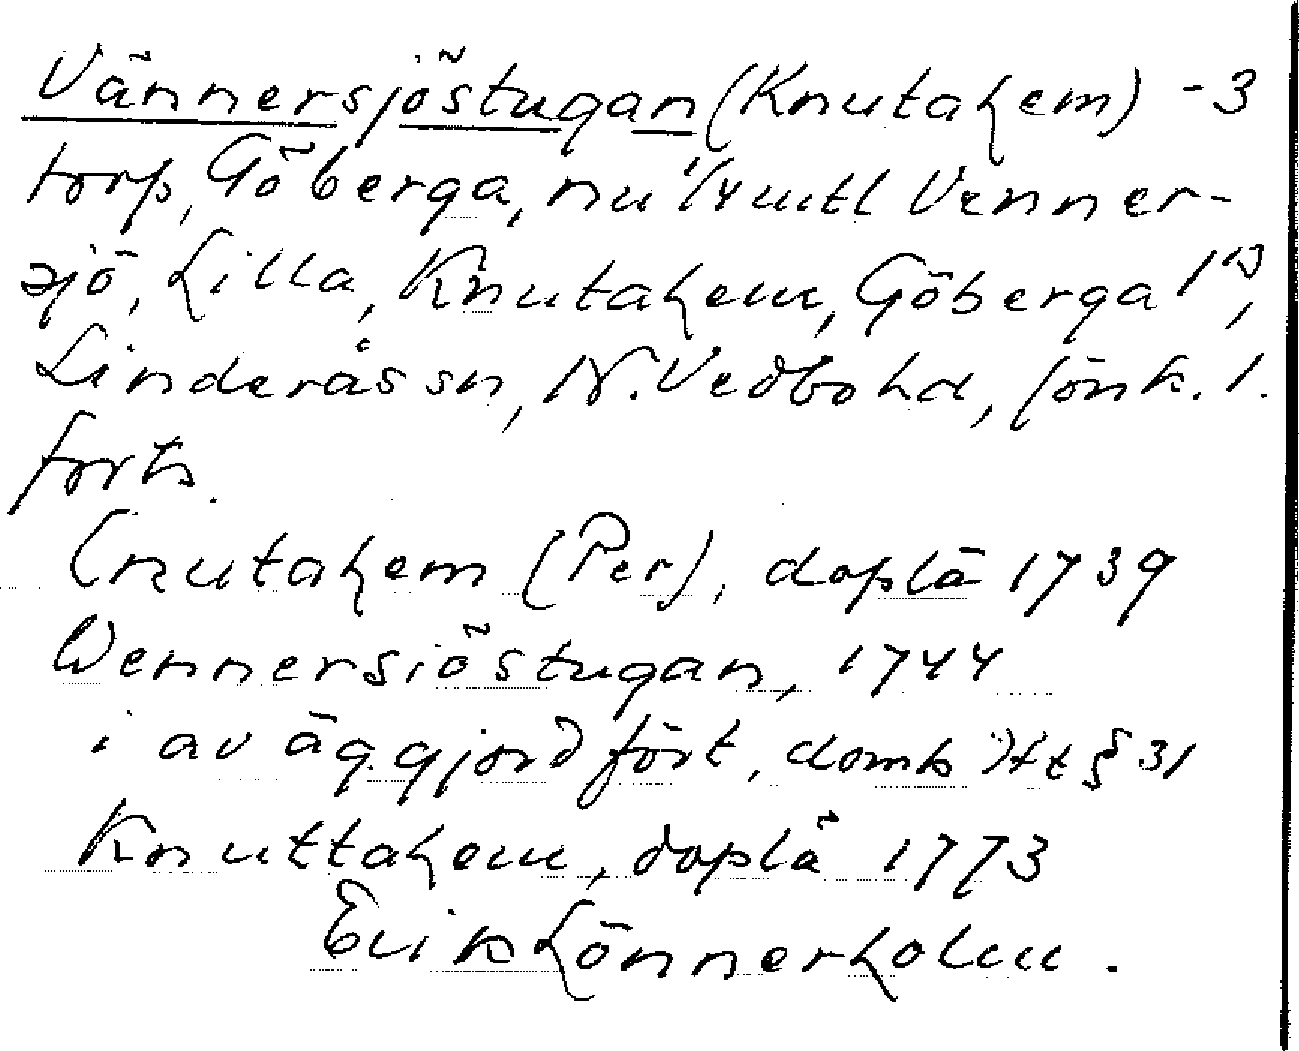 Vännersjöstugan (Knutahem) - 3
torp, Göberga, nu 1/4 mtl Venner-
sjö, Lilla, Knutahem, Göberga 1¹³,
Linderås sn, N. Vedbo hd, Jönk. l.
forts.
Cnutahem (Per), doplä 1739
Wennersiöstugan, 1744
i av äg. gjord fört, domb Ht § 31
Knuttahem, doplä 1773
Erik Lönnerholm.